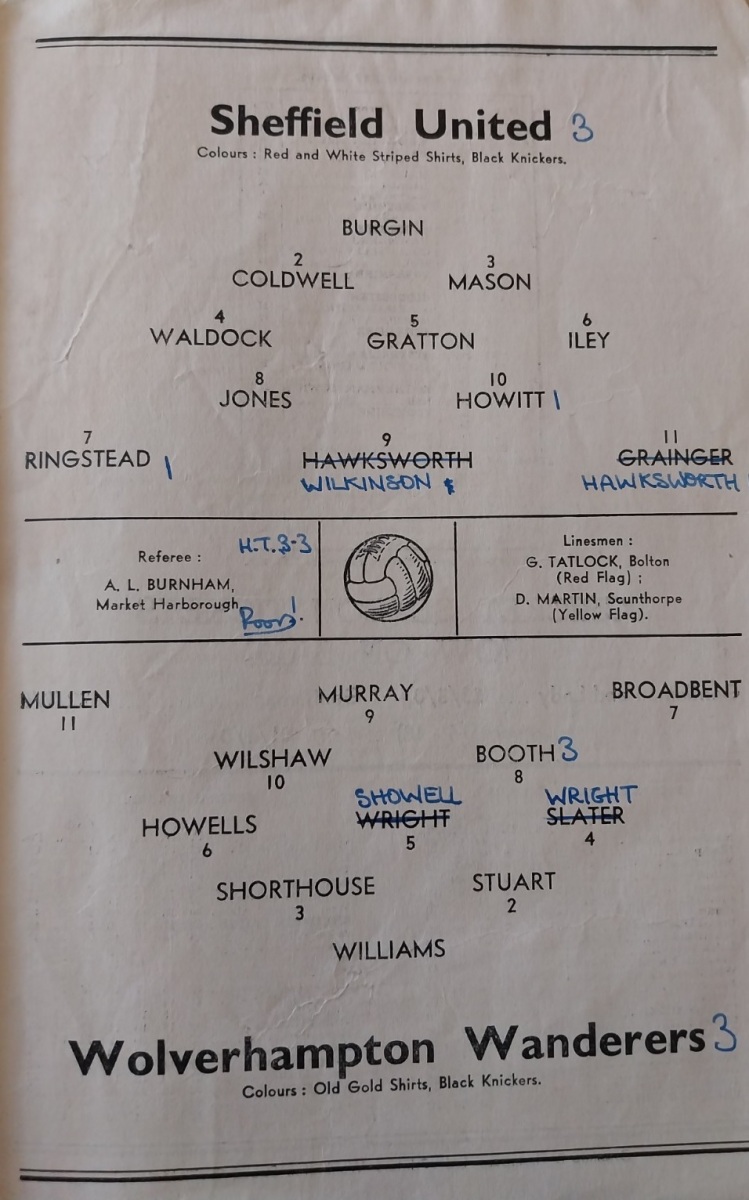 Sheffield United 3
Colours : Red and White Striped Shirts, Black Knickers.
BURGIN
2 3
COLDWELL MASON
4 5 6
WALDOCK GRATTON ILEY
8 10
JONES HOWITT 1
7 9 11
RINGSTEAD 1 HAWKSWORTH GRAINGER
WILKINSON HAWKSWORTH
Referee : H.T. 3-3
A. L. BURNHAM,
Market Harborough
Poor!
Linesmen :
G. TATLOCK, Bolton
(Red Flag) ;
D. MARTIN, Scunthorpe
(Yellow Flag).
MULLEN MURRAY BROADBENT
11 9 7
WILSHAW BOOTH 3
10 8
SHOWELL WRIGHT
HOWELLS WRIGHT SLATER
6 5 4
SHORTHOUSE STUART
3 2
WILLIAMS
Wolverhampton Wanderers 3
Colours : Old Gold Shirts, Black Knickers.